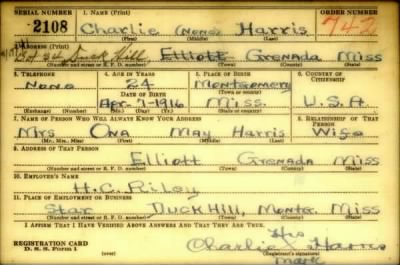 SERIAL NUMBER 1. NAME (Print) ORDER NUMBER
2108 Charlie (None) Harris 742
(First) (Middle) (Last)
2. ADDRESS (Print)
Duck Hill Elliott Grenada Miss
(Number and street or R. F. D. number) (Town) (County) (State)
3. TELEPHONE 4. AGE IN YEARS 5. PLACE OF BIRTH 6. COUNTRY OF CITIZENSHIP
None 24 Montgomery
DATE OF BIRTH (Town or county)
Apr. 7-1916 Miss. U.S.A.
(Exchange) (Number) (Mo.) (Day) (Yr.) (State or country)
7. NAME OF PERSON WHO WILL ALWAYS KNOW YOUR ADDRESS 8. RELATIONSHIP OF THAT PERSON
Mrs Ona May Harris Wife
(Mr., Mrs., Miss) (First) (Middle) (Last)
9. ADDRESS OF THAT PERSON
Elliott Grenada Miss
(Number and street or R. F. D. number) (Town) (County) (State)
10. EMPLOYER'S NAME
H.C. Riley
11. PLACE OF EMPLOYMENT OR BUSINESS
Star Duck Hill, Montg. Miss
(Number and street or R. F. D. number) (Town) (County) (State)
I AFFIRM THAT I HAVE VERIFIED ABOVE ANSWERS AND THAT THEY ARE TRUE.
His
REGISTRATION CARD Charlie X Harris
D. S. S. Form 1 (over) (Registrant's signature)
Mark